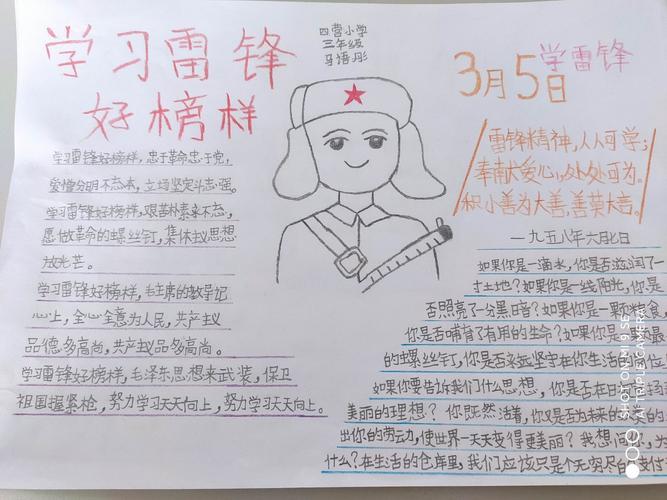 学习雷锋
好榜样
四营小学
三年级
马语彤
3月5日
学雷锋
学习雷锋好榜样,忠于革命忠于党,
爱憎分明不忘本,立场坚定斗志强。
学习雷锋好榜样,艰苦朴素永不忘,
愿做革命的螺丝钉,集体主义思想
放光芒。
学习雷锋好榜样,毛主席的教导记
心上,全心全意为人民,共产主义
品德多高尚,共产主义品多高尚。
学习雷锋好榜样,毛泽东思想来武装,保卫
祖国握紧枪,努力学习天天向上,努力学习天天向上。
雷锋精神,人人可学;
奉献爱心,处处可为。
积小善为大善,善莫大焉。
一九五八年六月七日
如果你是一滴水,你是否滋润了一
寸土地?如果你是一线阳光,你是
否照亮了一分黑暗?如果你是一颗粮食,
你是否哺育了有用的生命?如果你是
最
的螺丝钉,你是否永远坚守在你生活的
如果你要告诉我们什么思想,你是否在日
美丽的理想?你既然活着,你又是否为未来的人类的
出你的劳动力,使世界一天天变得更美丽?我想问你,为
什么?在生活的仓库里,我们应该只是个无穷尽的支付
SHOT ON MI 9 SE
AI TRIPLE CAMERA